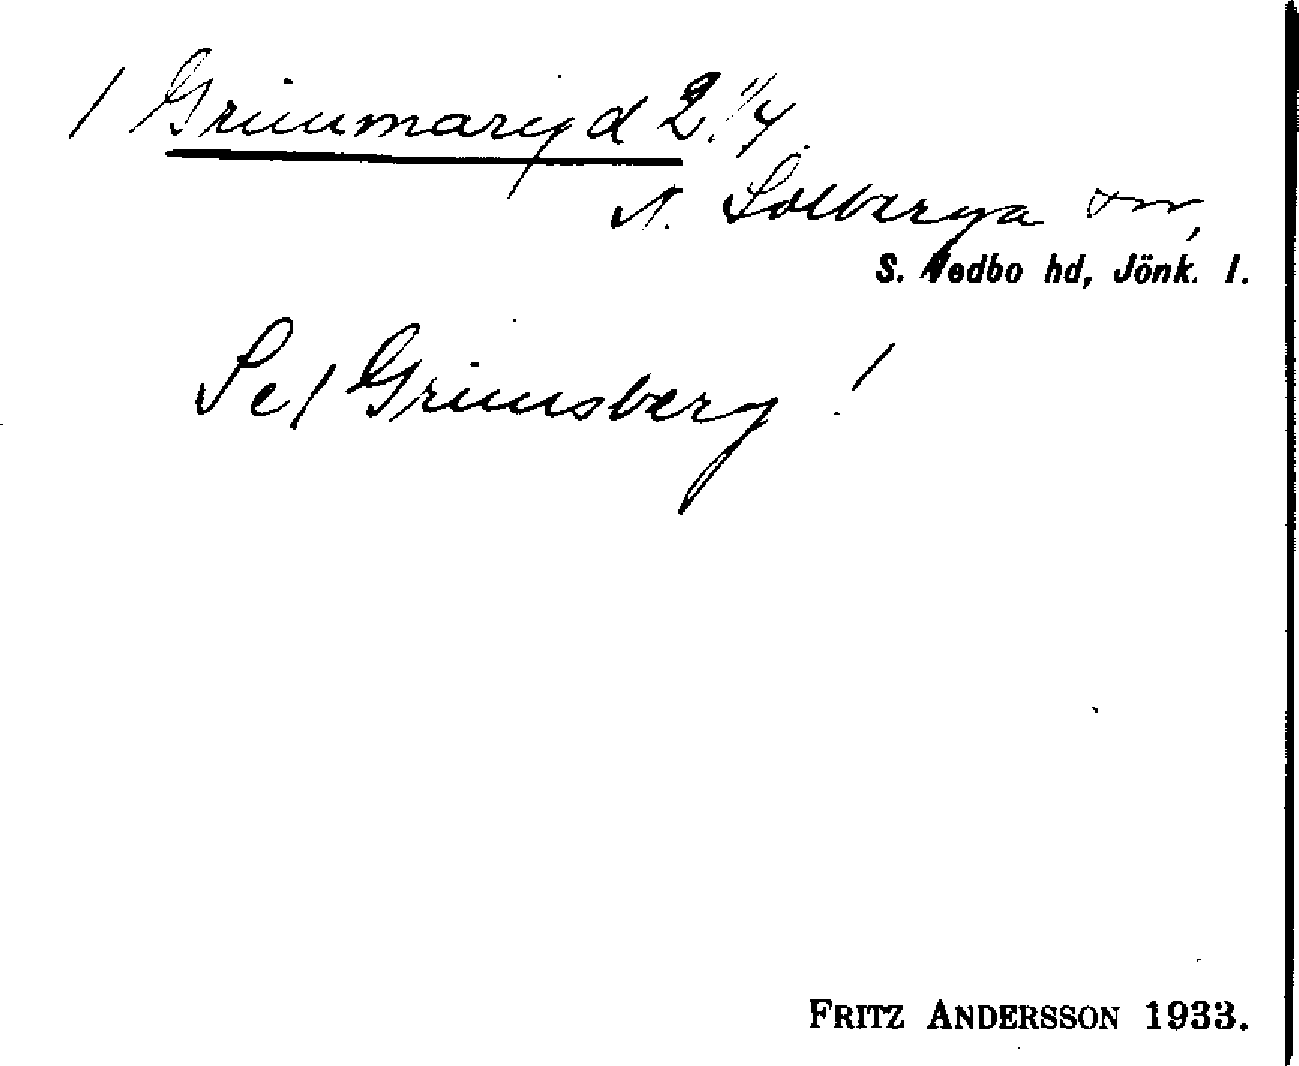 / Grimmaryd 2. 1/4
N. Solberga sn,
S. Vedbo hd, Jönk. l.
Se / Grimsberg !
FRITZ ANDERSSON 1933.